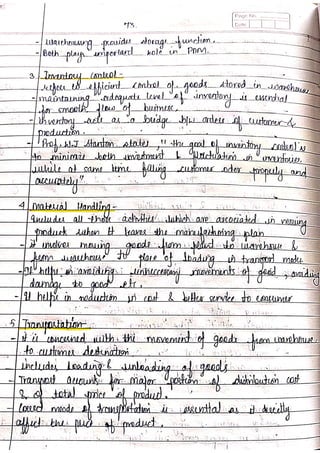 Page No.
Date
93.
- Warehousing provides storage function.
- Both plays important role in PDM.
3. Inventory control -
- refers to efficient control of goods stored in warehouse
- maintaining adequate level of inventory is essential
for smooth flow of business.
- Inventory acts as a bridge b/w orders of customer &
production.
- Prof. W.J Stanton states, " the goal of inventory control is
to minimize both investment & fluctuation in inventories
while at same time filling customer order properly and
accurately"
4. Material Handling -
includes all those activities which are associated in moving
product when it leaves the manufacturing plan
- it involves moving goods from plant to warehouse &
from warehouse to place of loading in transport mode
- It helps in avoiding unnecessary movements of good, avoiding
damage to good etc.
- It helps in reduction in cost & better service to consumer
5. Transportation -
- it is concerned with the movement of goods from warehouse
to customer destination
- includes loading & unloading of goods
- Transport accounts for major portion of distribution cost
& of total price of product.
- Correct mode of transportation is essential as it directly
affect the price of product.